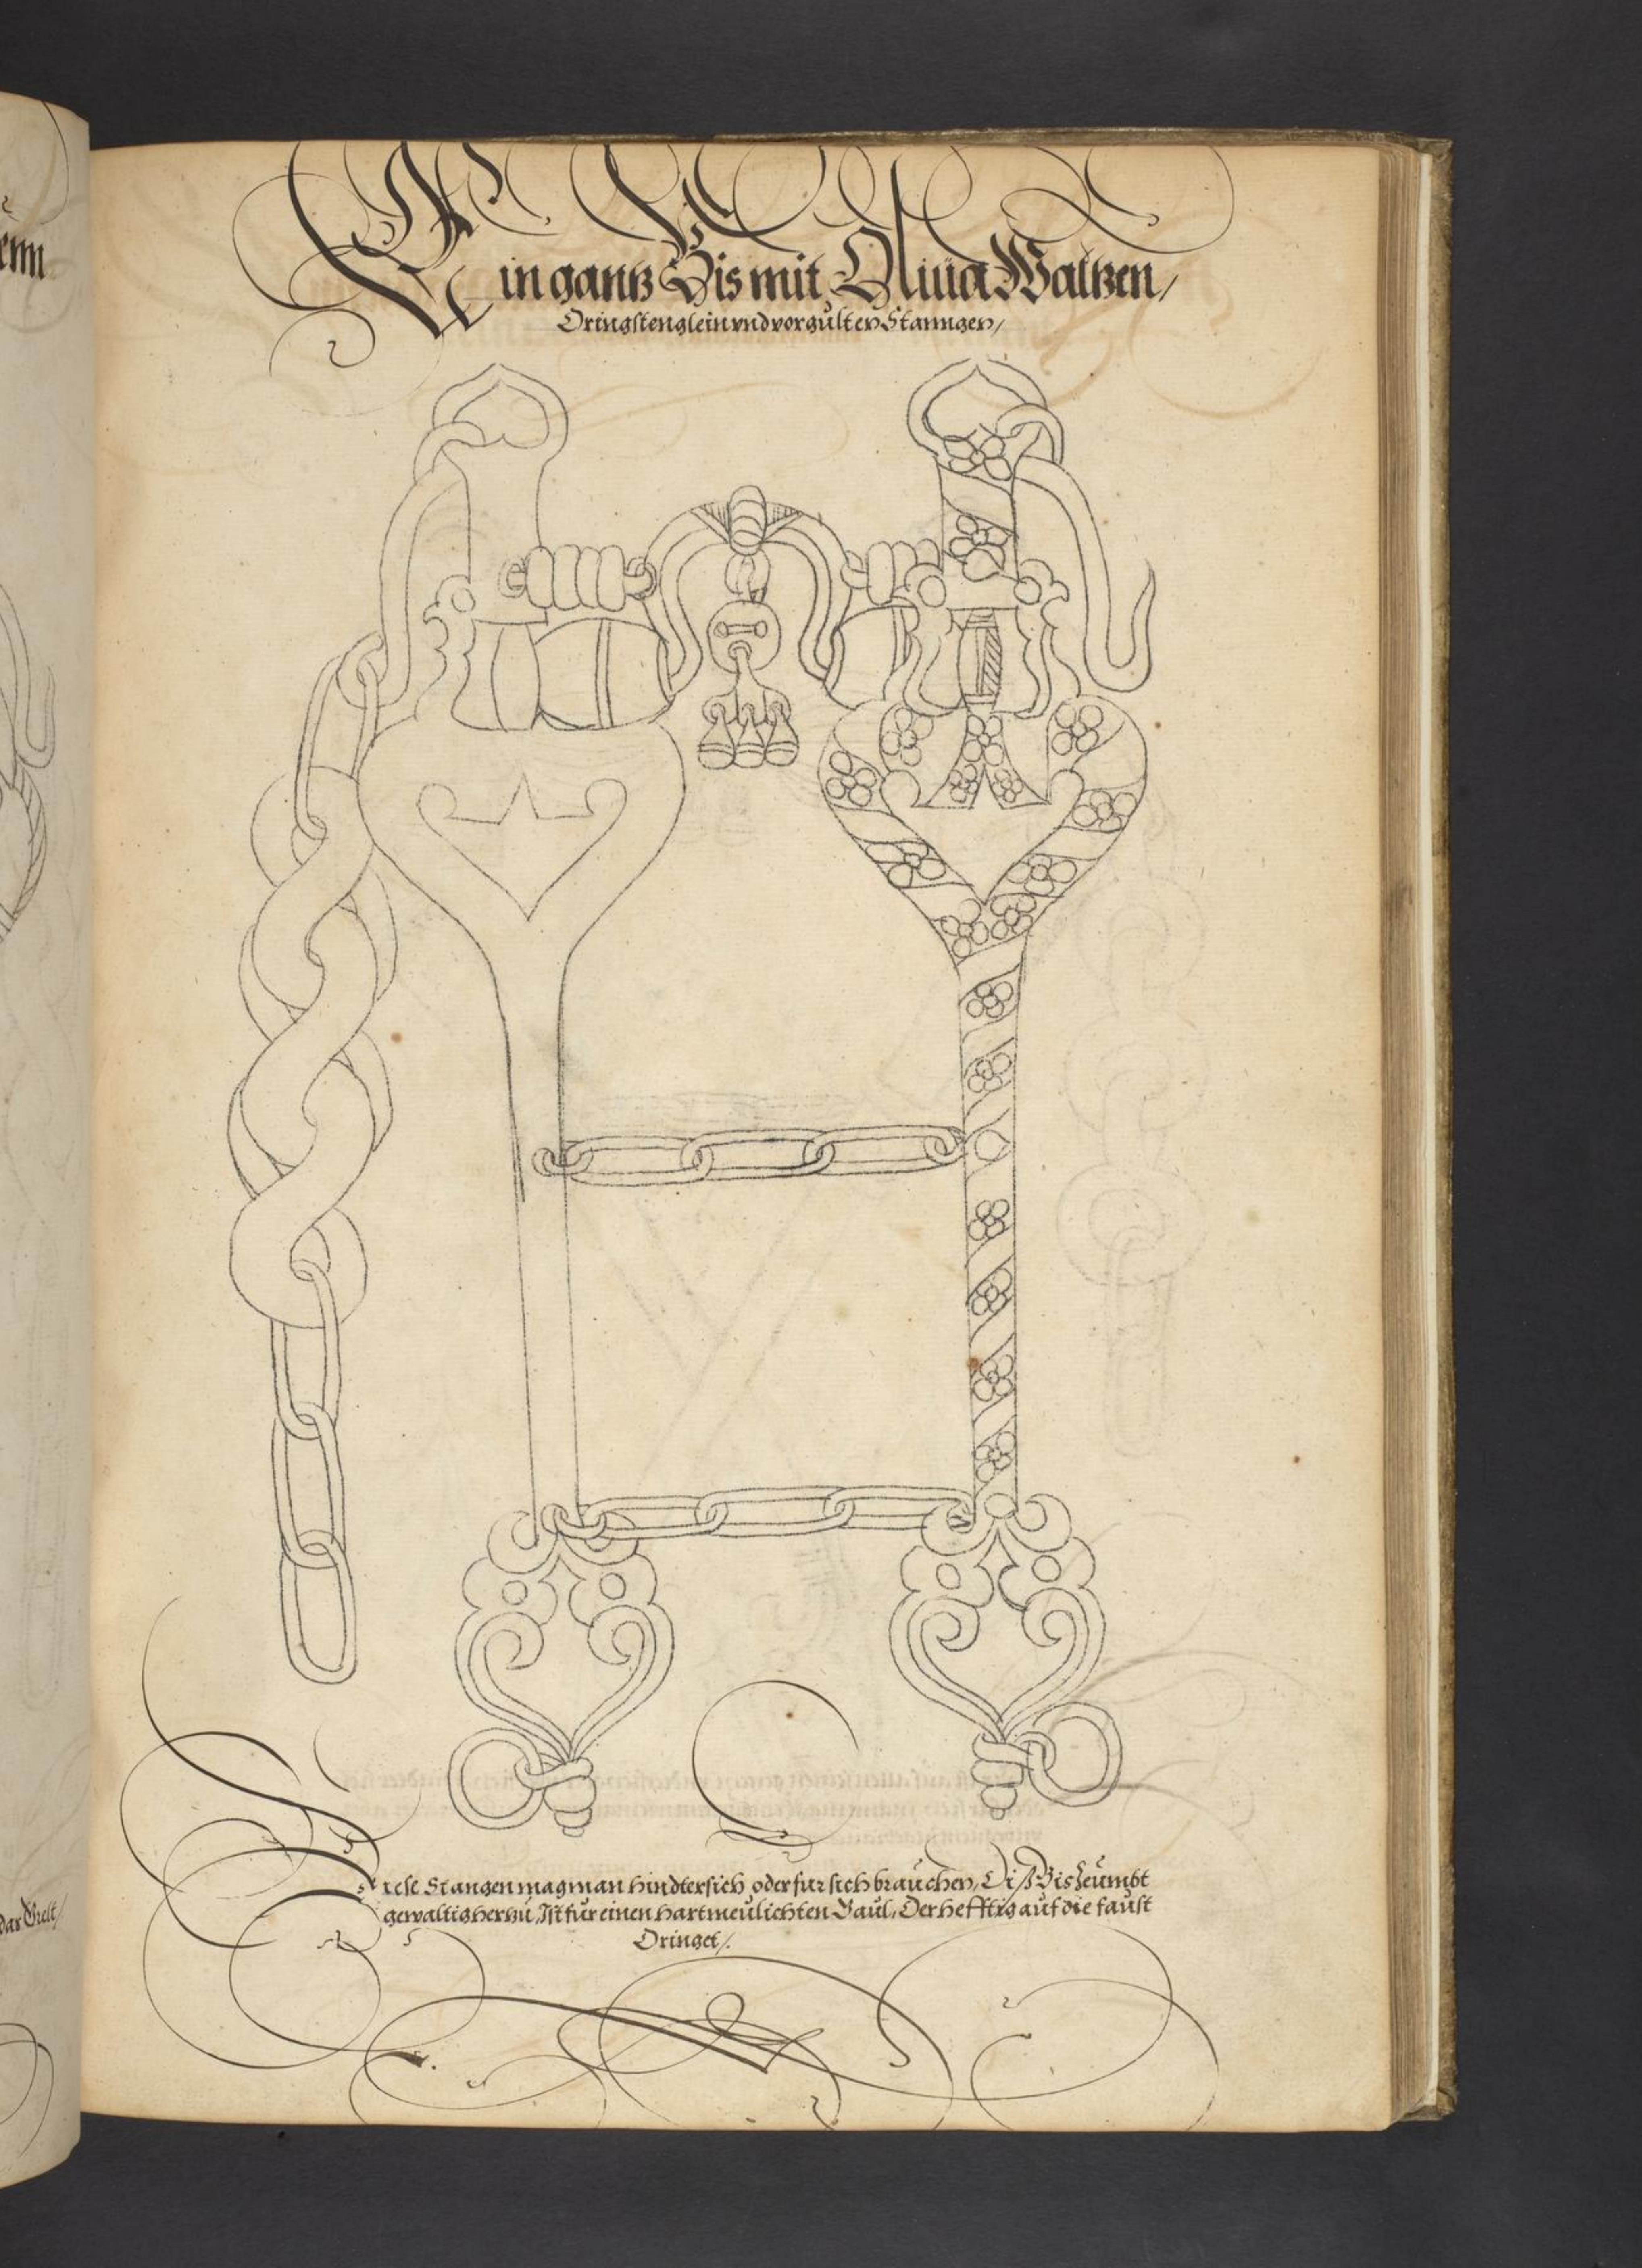 enn
Ein gantz Bis mit Oliua Waltzen /
Dringstenglein vnd vorgülten Stanngen /
Diese Stangen mag man hindtersich oder fur sich braüchen, Diß Bis Zeümbt
gewaltig herzü, Ist für einen hartmeülichten Gaül, Der hefftig aüf die faüst
Dringet /.